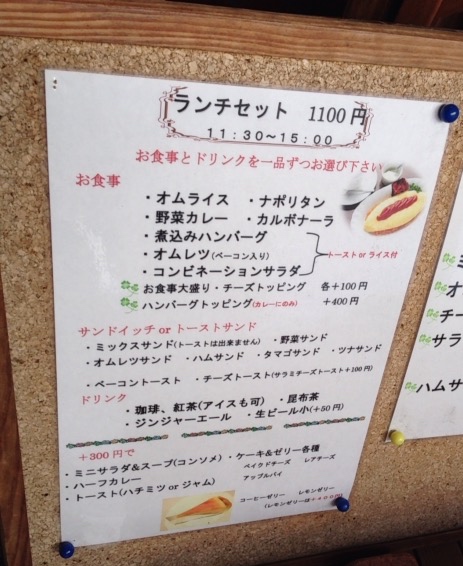 ランチセット 1100円
11:30~15:00
お食事とドリンクを一品ずつお選び下さい
お食事
・オムライス ・ナポリタン
・野菜カレー ・カルボナーラ
・煮込みハンバーグ
・オムレツ(ベーコン入り) トーストorライス付
・コンビネーションサラダ
お食事大盛り・チーズトッピング 各+100円
ハンバーグトッピング(カレーにのみ) +400円
サンドイッチorトーストサンド
・ミックスサンド(トーストは出来ません) ・野菜サンド
・オムレツサンド ・ハムサンド ・タマゴサンド ・ツナサンド
・ベーコントースト ・チーズトースト(サラミチーズトースト+100円)
ドリンク
・珈琲、紅茶(アイスも可) ・昆布茶
・ジンジャーエール ・生ビール小(+50円)
+300円で
・ミニサラダ&スープ(コンソメ) ・ケーキ&ゼリー各種
・ハーフカレー ベイクドチーズ レアチーズ
・トースト(ハチミツorジャム) アップルパイ
コーヒーゼリー レモンゼリー
(レモンゼリーは
オ
チー
サラ
ハムサ